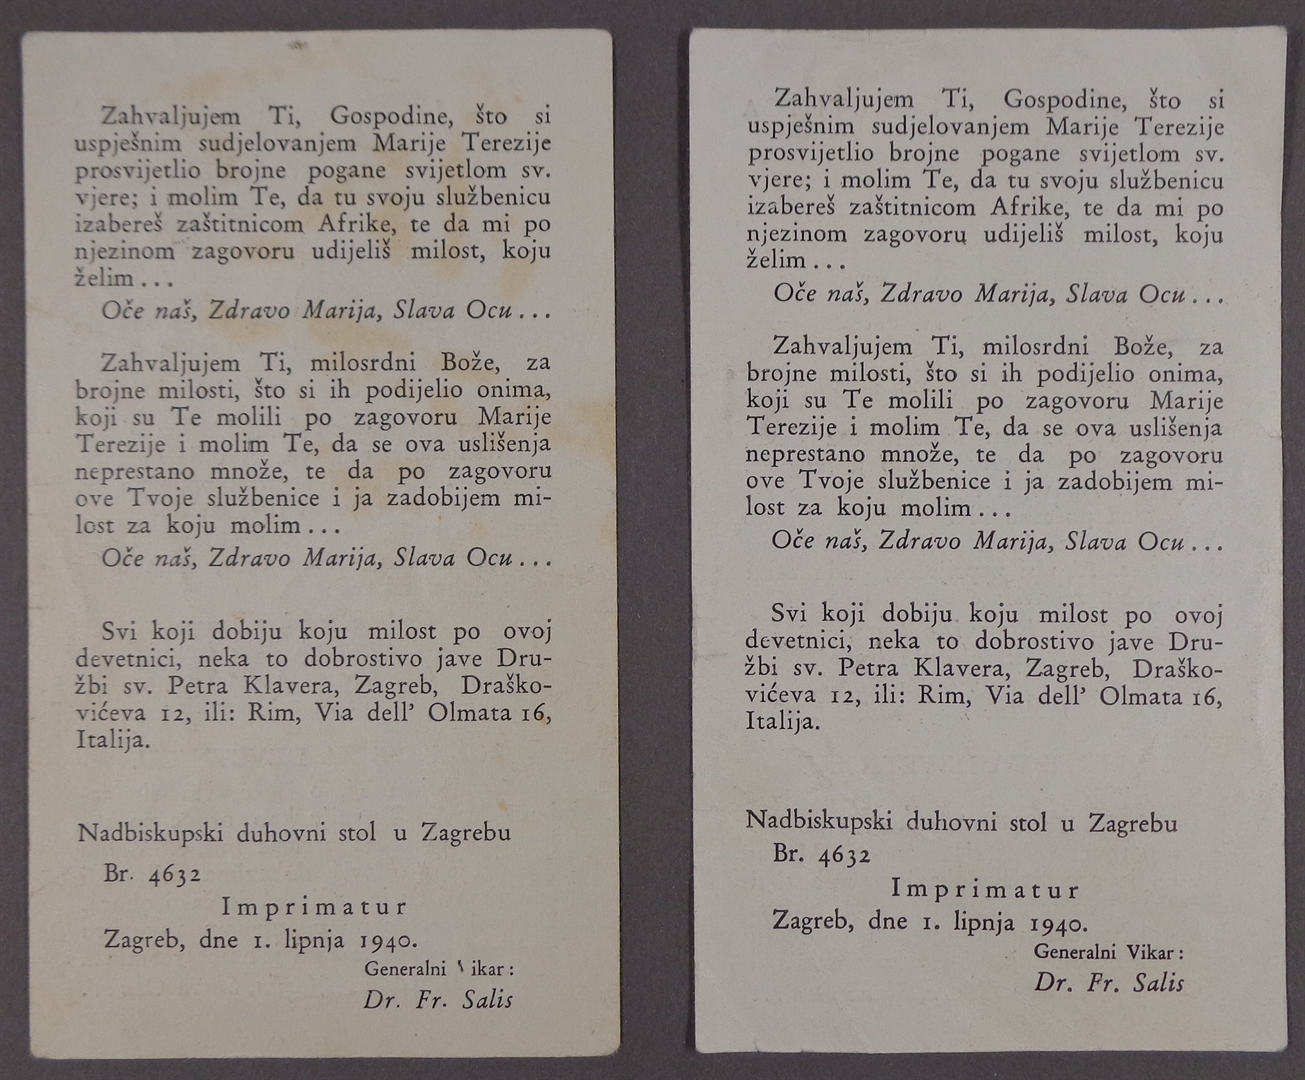 Zahvaljujem Ti, Gospodine, što si
uspješnim sudjelovanjem Marije Terezije
prosvijetlio brojne pogane svijetlom sv.
vjere; i molim Te, da tu svoju službenicu
izabereš zaštitnicom Afrike, te da mi po
njezinom zagovoru udijeliš milost, koju
želim...
Oče naš, Zdravo Marija, Slava Ocu...
Zahvaljujem Ti, milosrdni Bože, za
brojne milosti, što si ih podijelio onima,
koji su Te molili po zagovoru Marije
Terezije i molim Te, da se ova uslišenja
neprestano množe, te da po zagovoru
ove Tvoje službenice i ja zadobijem mi-
lost za koju molim...
Oče naš, Zdravo Marija, Slava Ocu...
Svi koji dobiju koju milost po ovoj
devetnici, neka to dobrostivo jave Dru-
žbi sv. Petra Klavera, Zagreb, Draško-
vićeva 12, ili: Rim, Via dell' Olmata 16,
Italija.
Nadbiskupski duhovni stol u Zagrebu
Br. 4632
Imprimatur
Zagreb, dne 1. lipnja 1940.
Generalni Vikar:
Dr. Fr. Salis
Zahvaljujem Ti, Gospodine, što si
uspješnim sudjelovanjem Marije Terezije
prosvijetlio brojne pogane svijetlom sv.
vjere; i molim Te, da tu svoju službenicu
izabereš zaštitnicom Afrike, te da mi po
njezinom zagovoru udijeliš milost, koju
želim...
Oče naš, Zdravo Marija, Slava Ocu...
Zahvaljujem Ti, milosrdni Bože, za
brojne milosti, što si ih podijelio onima,
koji su Te molili po zagovoru Marije
Terezije i molim Te, da se ova uslišenja
neprestano množe, te da po zagovoru
ove Tvoje službenice i ja zadobijem mi-
lost za koju molim...
Oče naš, Zdravo Marija, Slava Ocu...
Svi koji dobiju koju milost po ovoj
devetnici, neka to dobrostivo jave Dru-
žbi sv. Petra Klavera, Zagreb, Draško-
vićeva 12, ili: Rim, Via dell' Olmata 16,
Italija.
Nadbiskupski duhovni stol u Zagrebu
Br. 4632
Imprimatur
Zagreb, dne 1. lipnja 1940.
Generalni Vikar:
Dr. Fr. Salis